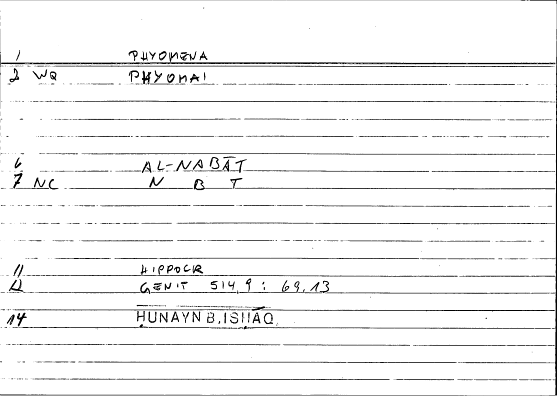 1 PHYOMENA
2 WQ PHYOMAI
6 AL-NABĀT
7 NC N B T
11 HIPPOCR
12 GENIT 514,9 : 69,13
14 ḤUNAYN B.ISḤĀQ